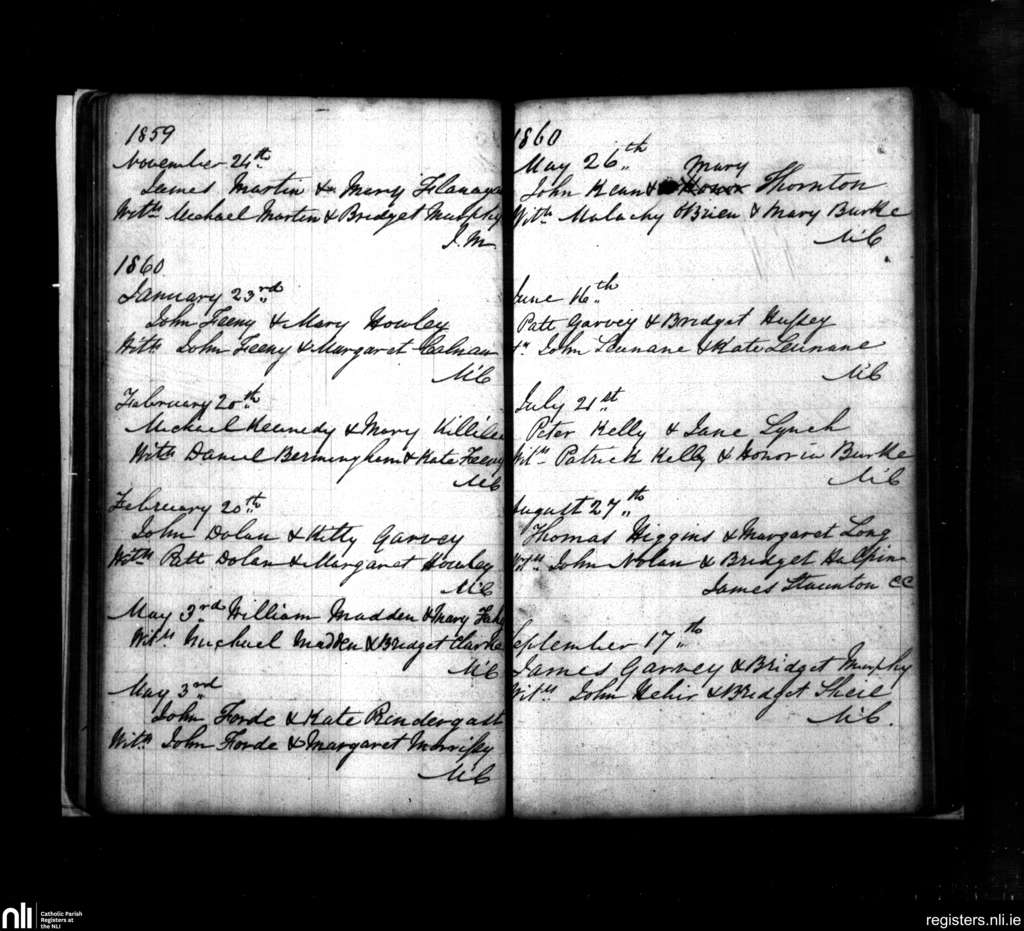 1859
November 24th
James Martin & Mary Flanagan
Witts Michael Martin & Bridget Murphy
J. M
1860
January 23rd
John Feeny & Mary Howley
Witts John Feeny & Margaret Calnan
M C
February 20th
Michael Kennedy & Mary Killilea
Witts Daniel Bermingham & Kate Feeny
M C
February 20th
John Dolan & Kitty Garvey
Witts Patt Dolan & Margaret Howley
M C
May 3rd William Madden & Mary Fahy
Wits Michael Madden & Bridget Clarke
M C
May 3rd
John Forde & Kate Prendergast
Wits John Forde & Margaret Morrissy
M C
1860
May 26th Mary
John Kean & Thornton
Witts Malachy O'Brien & Mary Burke
M C
June 16th
Patt Garvey & Bridget Hussey
John Leunane & Kate Leunane
M C
July 21st
Peter Kelly & Jane Lynch
Wits Patrick Kelly & Honoria Burke
M C
August 27th
Thomas Higgins & Margaret Long
Wits John Nolan & Bridget Halpin
James Staunton CC
September 17th
James Garvey & Bridget Murphy
Wits John Hehir & Bridget Sheil
M C.
nli
Catholic Parish
Registers at
the NLI
registers.nli.ie